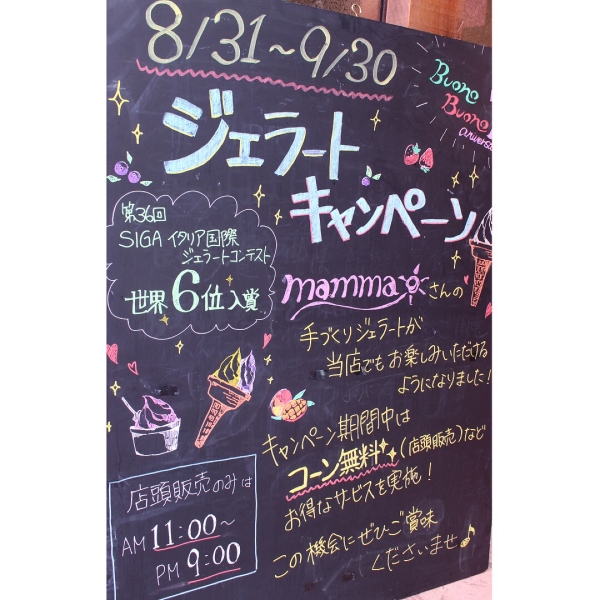 8/31~9/30
Buono
Buono
ジェラート
キャンペーン
第36回
SIGA イタリア国際
ジェラートコンテスト
世界6位入賞
mammaさんの
手づくりジェラートが
当店でもお楽しみいただける
ようになりました!
キャンペーン期間中は
コーン無料(店頭販売)など
お得なサービスを実施!
この機会にぜひご賞味
くださいませ♪
店頭販売のみは
AM 11:00~
PM 9:00